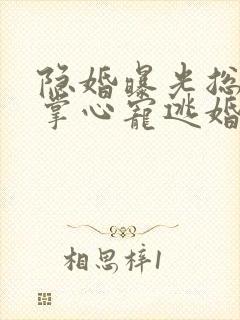 隐婚曝光总
掌心宠逃婚
相思梓1